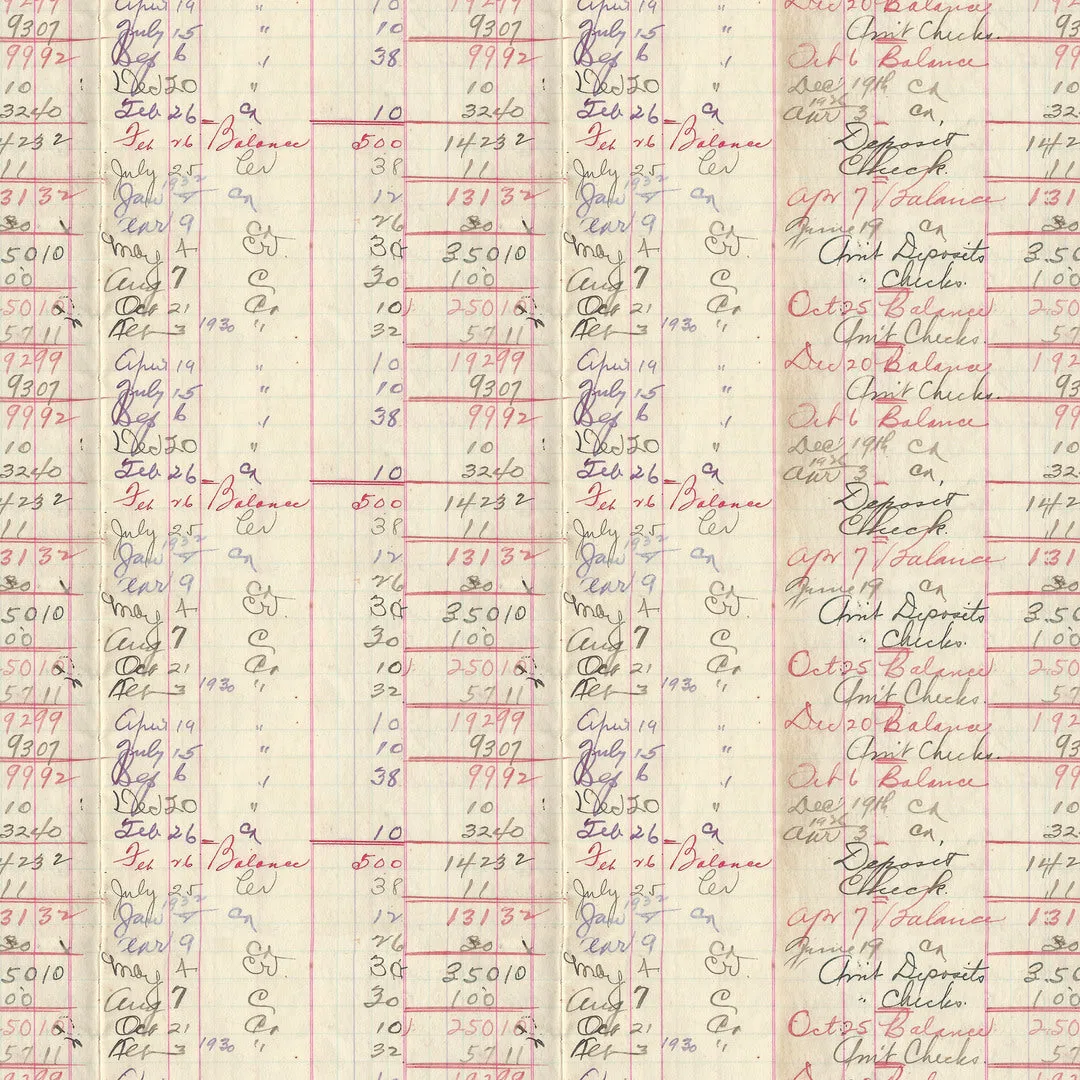 April 19 10 April 19 Dec 20 Balance
9307 July 15 " 10 9307 July 15 " Am't Checks. 93
9992 Sep 6 " 38 9992 Sep 6 " Oct 6 Balance 99
10 Dec 20 " 10 Dec 20 " Dec 19th Ca 10
3240 Feb 26 Ca 10 3240 Feb 26 Ca 1936 Apr 3 Ca, 32
4232 Feb 26 Balance 500 14232 Feb 26 Balance Deposit 142
11 July 25 38 11 July 25 Check. 11
3132 Jan 1932 Ca 12 13132 Jan 1932 Ca Apr 7 Balance 131
30 ear 9 26 30 ear 9 June 19 Ca 30
5010 May 4 Cr 30 35010 May 4 Cr Am't Deposits 350
00 Aug 7 C 30 100 Aug 7 C " Checks. 100
5016 Oct 21 Ca 10 25016 Oct 21 Ca Oct 25 Balance 250
5711 3 1930 " 32 5711 3 1930 " Am't Checks. 57
9299 April 19 " 10 19299 April 19 " Dec 20 Balance 192
9307 July 15 " 10 9307 July 15 " Am't Checks. 93
9992 Sep 6 " 38 9992 Sep 6 " Oct 6 Balance 99
10 Dec 20 " 10 Dec 20 " Dec 19th Ca 10
3240 Feb 26 Ca 10 3240 Feb 26 Ca 1936 Apr 3 Ca, 32
4232 Feb 26 Balance 500 14232 Feb 26 Balance Deposit 142
11 July 25 38 11 July 25 Check. 11
3132 Jan 1932 Ca 12 13132 Jan 1932 Ca Apr 7 Balance 131
30 ear 9 26 30 ear 9 June 19 Ca 30
5010 May 4 Cr 30 35010 May 4 Cr Am't Deposits 350
00 Aug 7 C 30 100 Aug 7 C " Checks. 100
5016 Oct 21 Ca 10 25016 Oct 21 Ca Oct 25 Balance 250
5711 3 1930 " 32 5711 3 1930 " Am't Checks. 57
9299 April 19 " 10 19299 April 19 " Dec 20 Balance 192
9307 July 15 " 10 9307 July 15 " Am't Checks. 93
9992 Sep 6 " 38 9992 Sep 6 " Oct 6 Balance 99
10 Dec 20 " 10 Dec 20 " Dec 19th Ca 10
3240 Feb 26 Ca 10 3240 Feb 26 Ca 1936 Apr 3 Ca, 32
4232 Feb 26 Balance 500 14232 Feb 26 Balance Deposit 142
11 July 25 38 11 July 25 Check. 11
3132 Jan 1932 Ca 12 13132 Jan 1932 Ca Apr 7 Balance 131
30 ear 9 26 30 ear 9 June 19 Ca 30
5010 May 4 Cr 30 35010 May 4 Cr Am't Deposits 350
00 Aug 7 C 30 100 Aug 7 C " Checks. 100
5016 Oct 21 Ca 10 25016 Oct 21 Ca Oct 25 Balance 250
5711 3 1930 " 32 5711 3 1930 " Am't Checks. 57